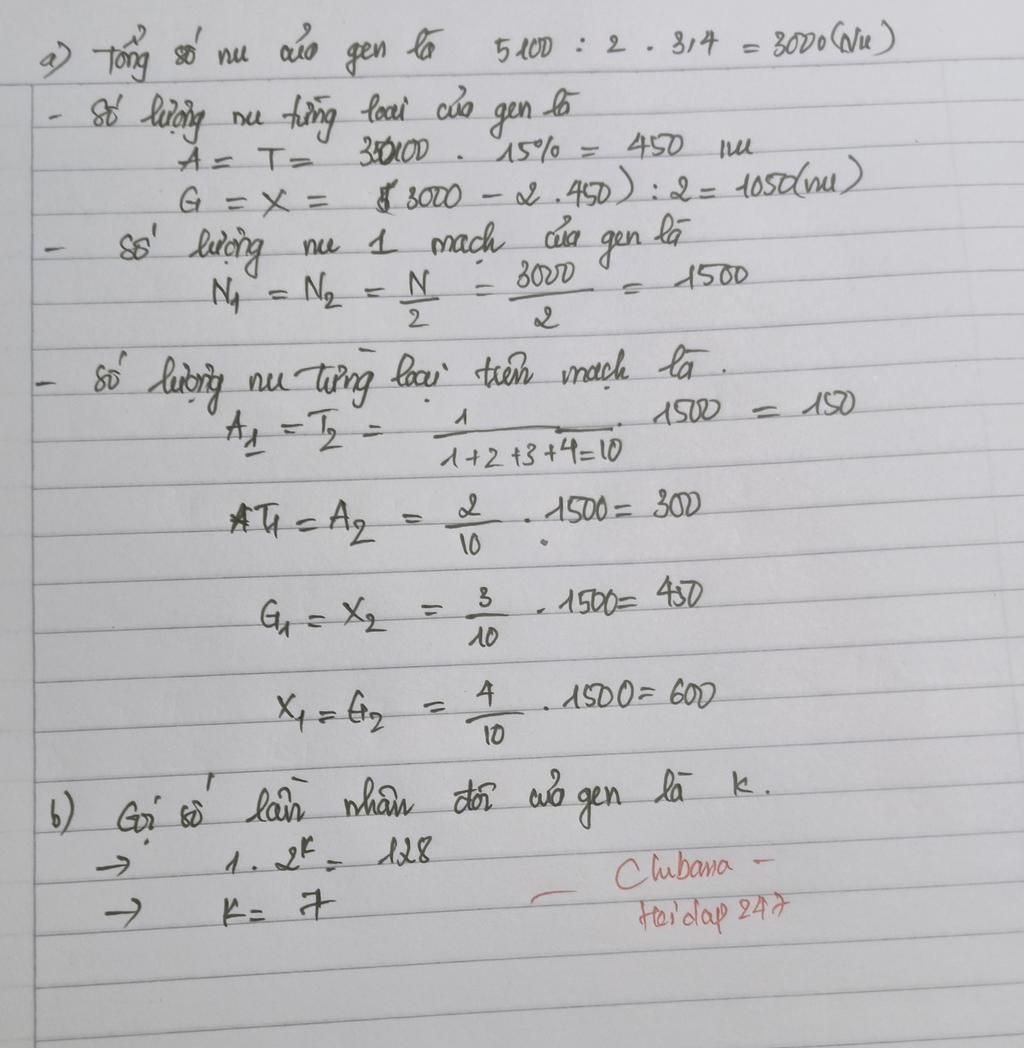 a) Tổng số nu của gen là 5100 : 2 . 3,4 = 3000 (Nu)
- Số lượng nu từng loại của gen là
A = T = 3000 . 15% = 450 nu
G = X = (3000 - 2 . 450) : 2 = 1050 (nu)
- Số lượng nu 1 mạch của gen là
N1 = N2 = N/2 = 3000/2 = 1500
- Số lượng nu từng loại trên mạch là.
A1 = T2 = 1/(1+2+3+4=10) . 1500 = 150
T1 = A2 = 2/10 . 1500 = 300
G1 = X2 = 3/10 . 1500 = 450
X1 = G2 = 4/10 . 1500 = 600
b) Gọi số lần nhân đôi của gen là k.
→ 1 . 2^k = 128
→ k = 7
— Chubana -
Hoidap 247